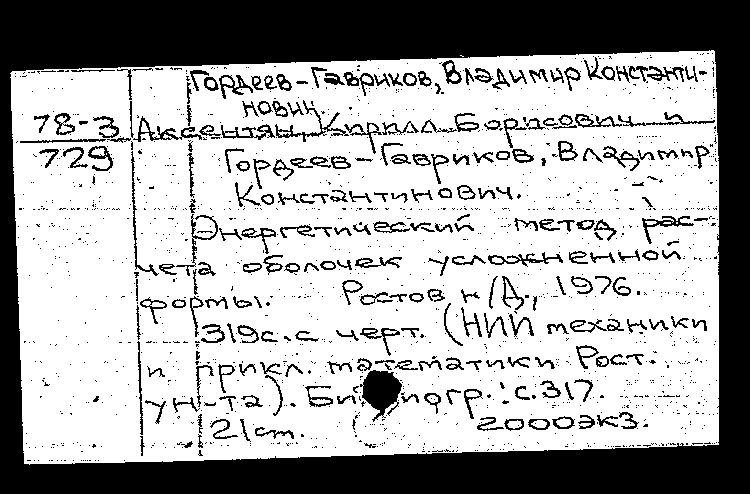 Гордеев-Гавриков, Владимир Константи-
нович.
78-3 Аксентян, Кирилл Борисович и
729 Гордеев-Гавриков, Владимир
Константинович.
Энергетический метод рас-
чета оболочек усложненной
формы. Ростов н/Д., 1976.
319с. с черт. (НИИ механики
и прикл. математики Рост.
ун-та). Библиогр.: с. 317.
21 cm. 2000экз.